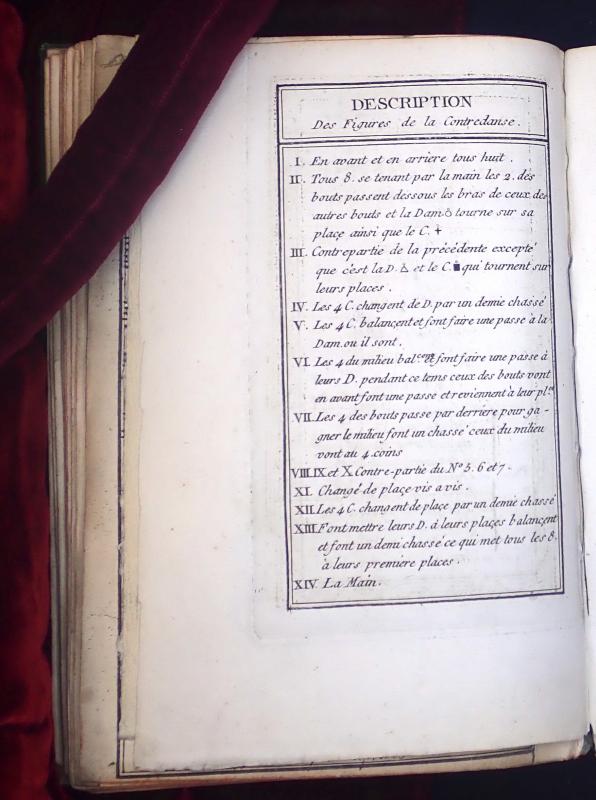 DESCRIPTION
Des Figures de la Contredanse.
I. En avant et en arriere tous huit.
II. Tous 8. se tenant par la main les 2. des
bouts passent dessous les bras de ceux des
autres bouts et la Dam. tourne sur sa
plaçe ainsi que le C.
III. Contrepartie de la précédente excepté
que c'est la D. et le C. qui tournent sur
leurs places.
IV. Les 4 C. changent de D. par un demie chassé
V. Les 4 C. balançent et font faire une passe à la
Dam. ou il sont.
VI. Les 4 du milieu bal.cent et font faire une passe à
leurs D. pendant ce tems ceux des bouts vont
en avant font une passe et reviennent à leur pl.ce
VII. Les 4 des bouts passe par derriere pour ga-
gner le milieu font un chassé ceux du milieu
vont au 4. coins
VIII. IX et X. Contre-partie du No. 5. 6 et 7.
XI. Changé de plaçe vis a vis.
XII. Les 4 C. changent de plaçe par un demie chassé
XIII. Font mettre leurs D. à leurs plaçes balançent
et font un demi chassé ce qui met tous les 8.
à leurs premiere places.
XIV. La Main.